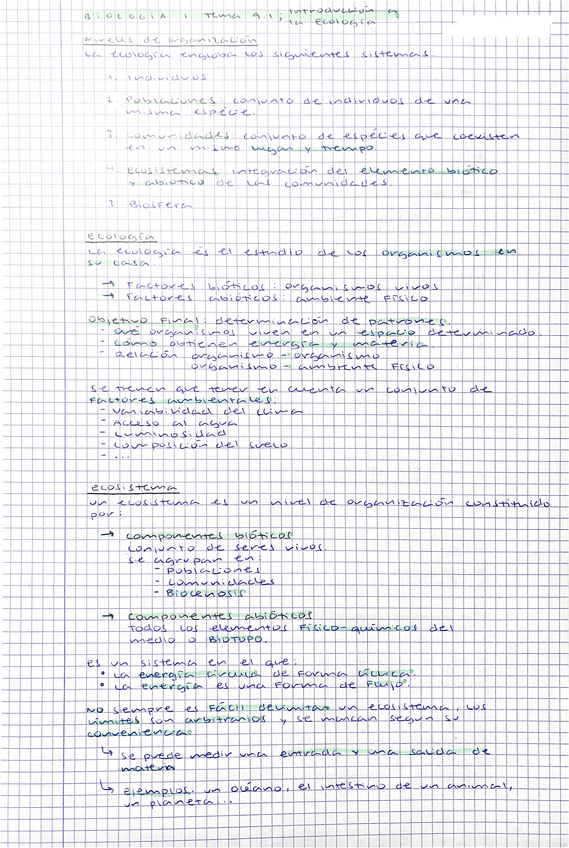 BIOLOGÍA I Tema 9.1; introducción a
la Ecología
Niveles de organización
La ecología engloba los siguientes sistemas.
1. Individuos
2. Poblaciones: conjunto de individuos de una
misma espécie.
3. Comunidades. conjunto de espécies que coexisten
en un mismo lugar y tiempo.
4. Ecosistemas integración del elemento biótico
y abiótico de las comunidades.
3. Biosfera
Ecología
La ecología és el estudio de los organismos en
su casa.
→ Factores bióticos: organismos vivos
→ Factores abióticos: ambiente Físico
Objetivo Final: determinación de patrones.
- Qué organismos viven en un espacio determinado.
- Cómo obtienen energía y materia.
- Relación organismo - organismo
organismo - ambiente Físico
Se tienen que tener en cuenta un conjunto de
Factores ambientales:
- Variabilidad del clima
- Acceso al agua
- Luminosidad
- Composición del suelo
- ...
Ecosistema
Un ecosistema es un nivel de organización constituido
por:
→ Componentes bióticos
Conjunto de seres vivos.
Se agrupan en:
- Poblaciones
- Comunidades
- Biocenosis
→ Componentes abióticos
Todos los elementos Físico-químicos del
medio o BIOTOPO.
Es un sistema en el que:
• La energía circula de Forma cíclica.
• La energía es una Forma de Flujo.
No siempre es Fácil delimitar un ecosistema, los
límites son arbitrarios y se marcan segun su
conveniencia
↳ Se puede medir una entrada y una salida de
materia
↳ Ejemplos: un océano, el intestino de un animal,
un planeta...